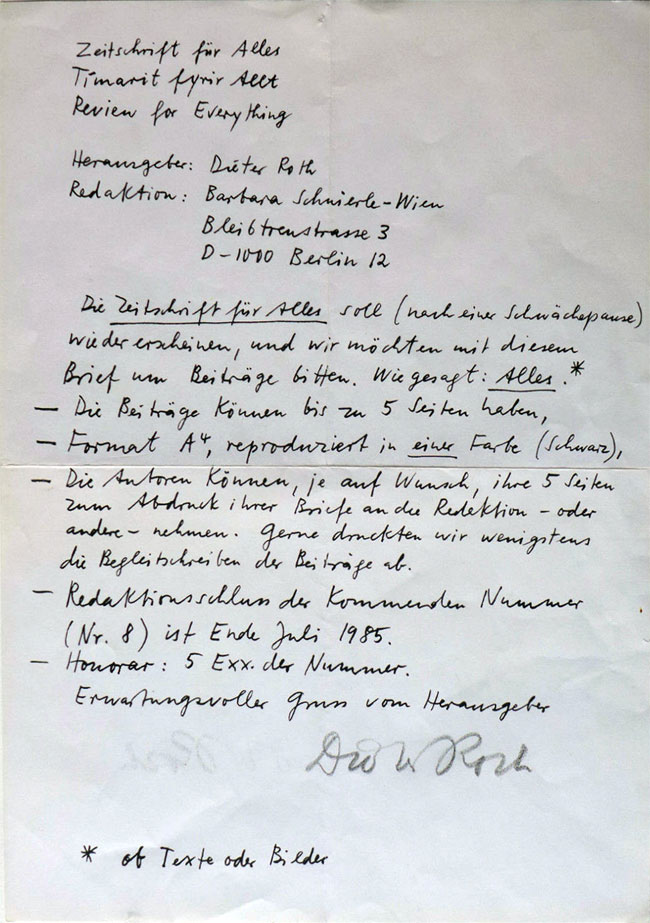 Zeitschrift für Alles
Tímarit fyrir Allt
Review for Everything
Herausgeber: Dieter Roth
Redaktion: Barbara Schnierle-Wien
Bleibtreustrasse 3
D-1000 Berlin 12
Die Zeitschrift für Alles soll (nach einer Schwächepause)
wieder erscheinen, und wir möchten mit diesem
Brief um Beiträge bitten. Wie gesagt: Alles.*
— Die Beiträge können bis zu 5 Seiten haben,
— Format A4, reproduziert in einer Farbe (Schwarz),
— Die Autoren können, je auf Wunsch, ihre 5 Seiten
zum Abdruck ihrer Briefe an die Redaktion – oder
andere – nehmen. Gerne druckten wir wenigstens
die Begleitschreiben der Beiträge ab.
— Redaktionsschluss der kommenden Nummer
(Nr. 8) ist Ende Juli 1985.
— Honorar: 5 Exx. der Nummer.
Erwartungsvoller Gruss vom Herausgeber
Dieter Roth
* ob Texte oder Bilder